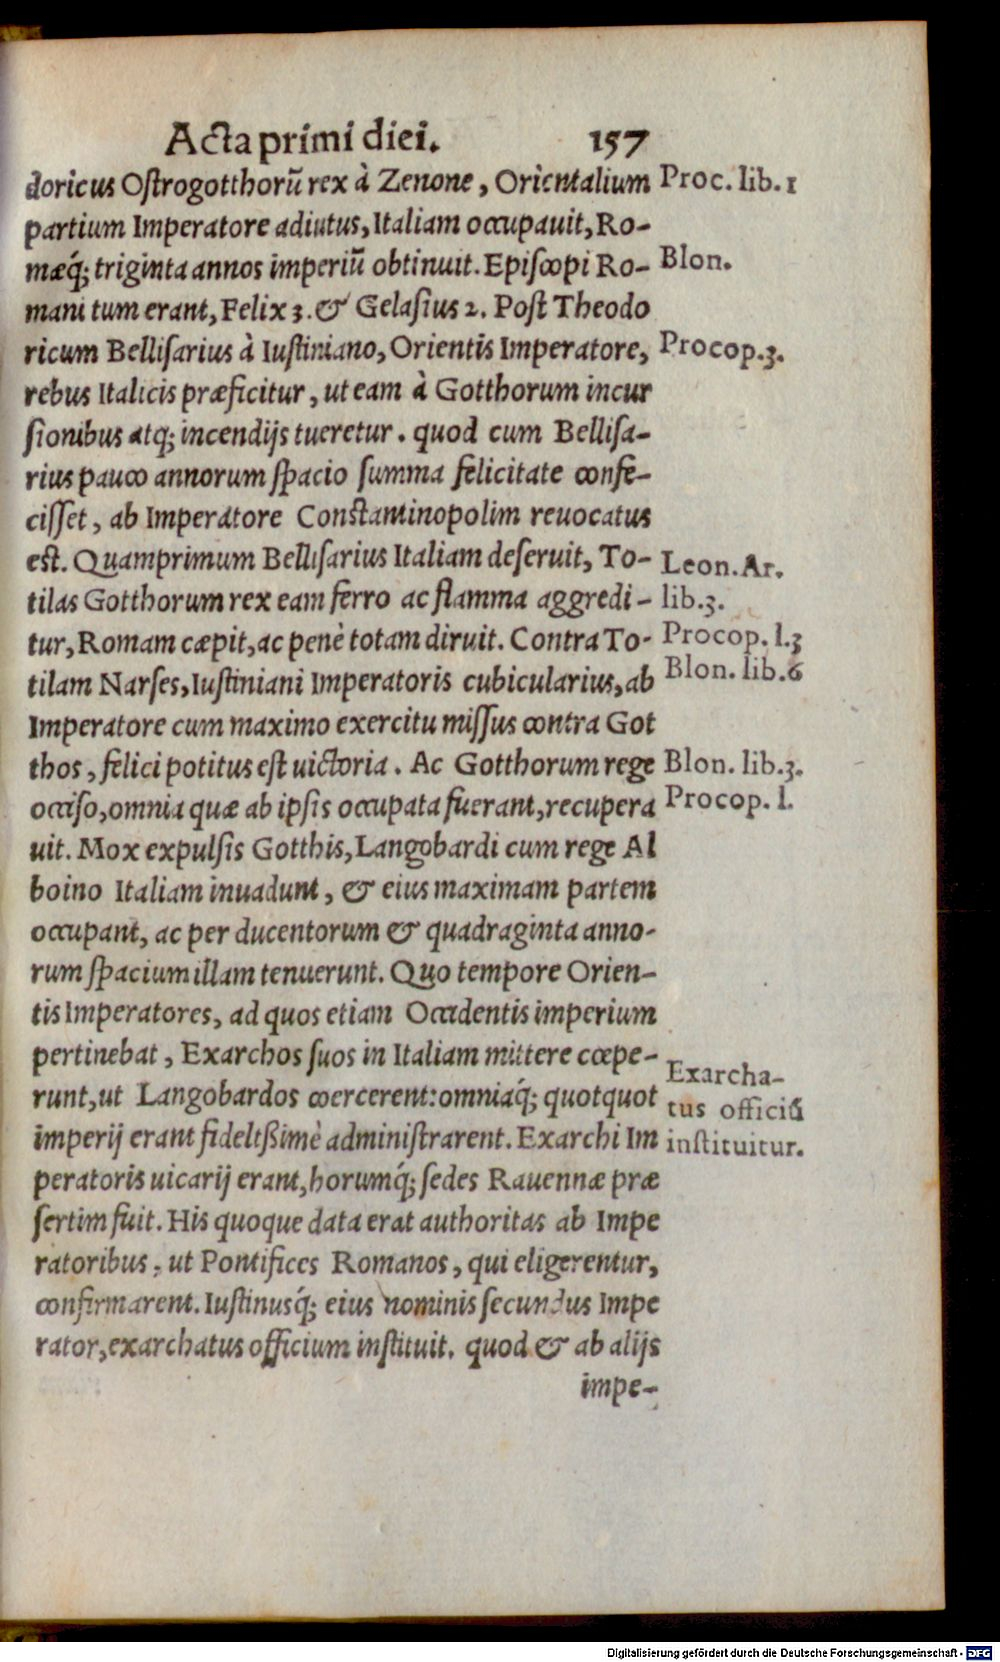 Acta primi diei. 157
doricus Oſtrogotthorũ rex à Zenone, Orientalium
Proc. lib. 1
partium Imperatore adiutus, Italiam occupauit, Ro-
mæq́; triginta annos imperiũ obtinuit. Epiſcopi Ro-
Blon.
mani tum erant, Felix 3. & Gelaſius 2. Poſt Theodo
ricum Belliſarius à Iuſtiniano, Orientis Imperatore,
Procop. 3.
rebus Italicis præficitur, ut eam à Gotthorum incur
ſionibus atq; incendijs tueretur. quod cum Belliſa-
rius pauco annorum ſpacio ſumma felicitate confe-
ciſſet, ab Imperatore Conſtantinopolim reuocatus
eſt. Quamprimum Belliſarius Italiam deſeruit, To-
Leon. Ar.
tilas Gotthorum rex eam ferro ac flamma aggredi-
lib. 3.
tur, Romam cæpit, ac penè totam diruit. Contra To-
Procop. l. 3
tilam Narſes, Iuſtiniani Imperatoris cubicularius, ab
Blon. lib. 6
Imperatore cum maximo exercitu miſſus contra Got
thos, felici potitus eſt uictoria. Ac Gotthorum rege
Blon. lib. 3.
occiſo, omnia quæ ab ipſis occupata fuerant, recupera
Procop. l.
uit. Mox expulſis Gotthis, Langobardi cum rege Al
boino Italiam inuadunt, & eius maximam partem
occupant, ac per ducentorum & quadraginta anno-
rum ſpacium illam tenuerunt. Quo tempore Orien-
tis Imperatores, ad quos etiam Occidentis imperium
pertinebat, Exarchos ſuos in Italiam mittere cœpe-
Exarcha-
runt, ut Langobardos coercerent: omniaq́; quotquot
tus officiũ
imperij erant fideliſsimè adminiſtrarent. Exarchi Im
inſtituitur.
peratoris uicarij erant, horumq́; ſedes Rauennæ præ
ſertim fuit. His quoque data erat authoritas ab Impe
ratoribus, ut Pontifices Romanos, qui eligerentur,
confirmarent. Iuſtinusq́; eius nominis ſecundus Impe
rator, exarchatus officium inſtituit. quod & ab alijs
impe-
Digitalisierung gefördert durch die Deutsche Forschungsgemeinschaft - DFG